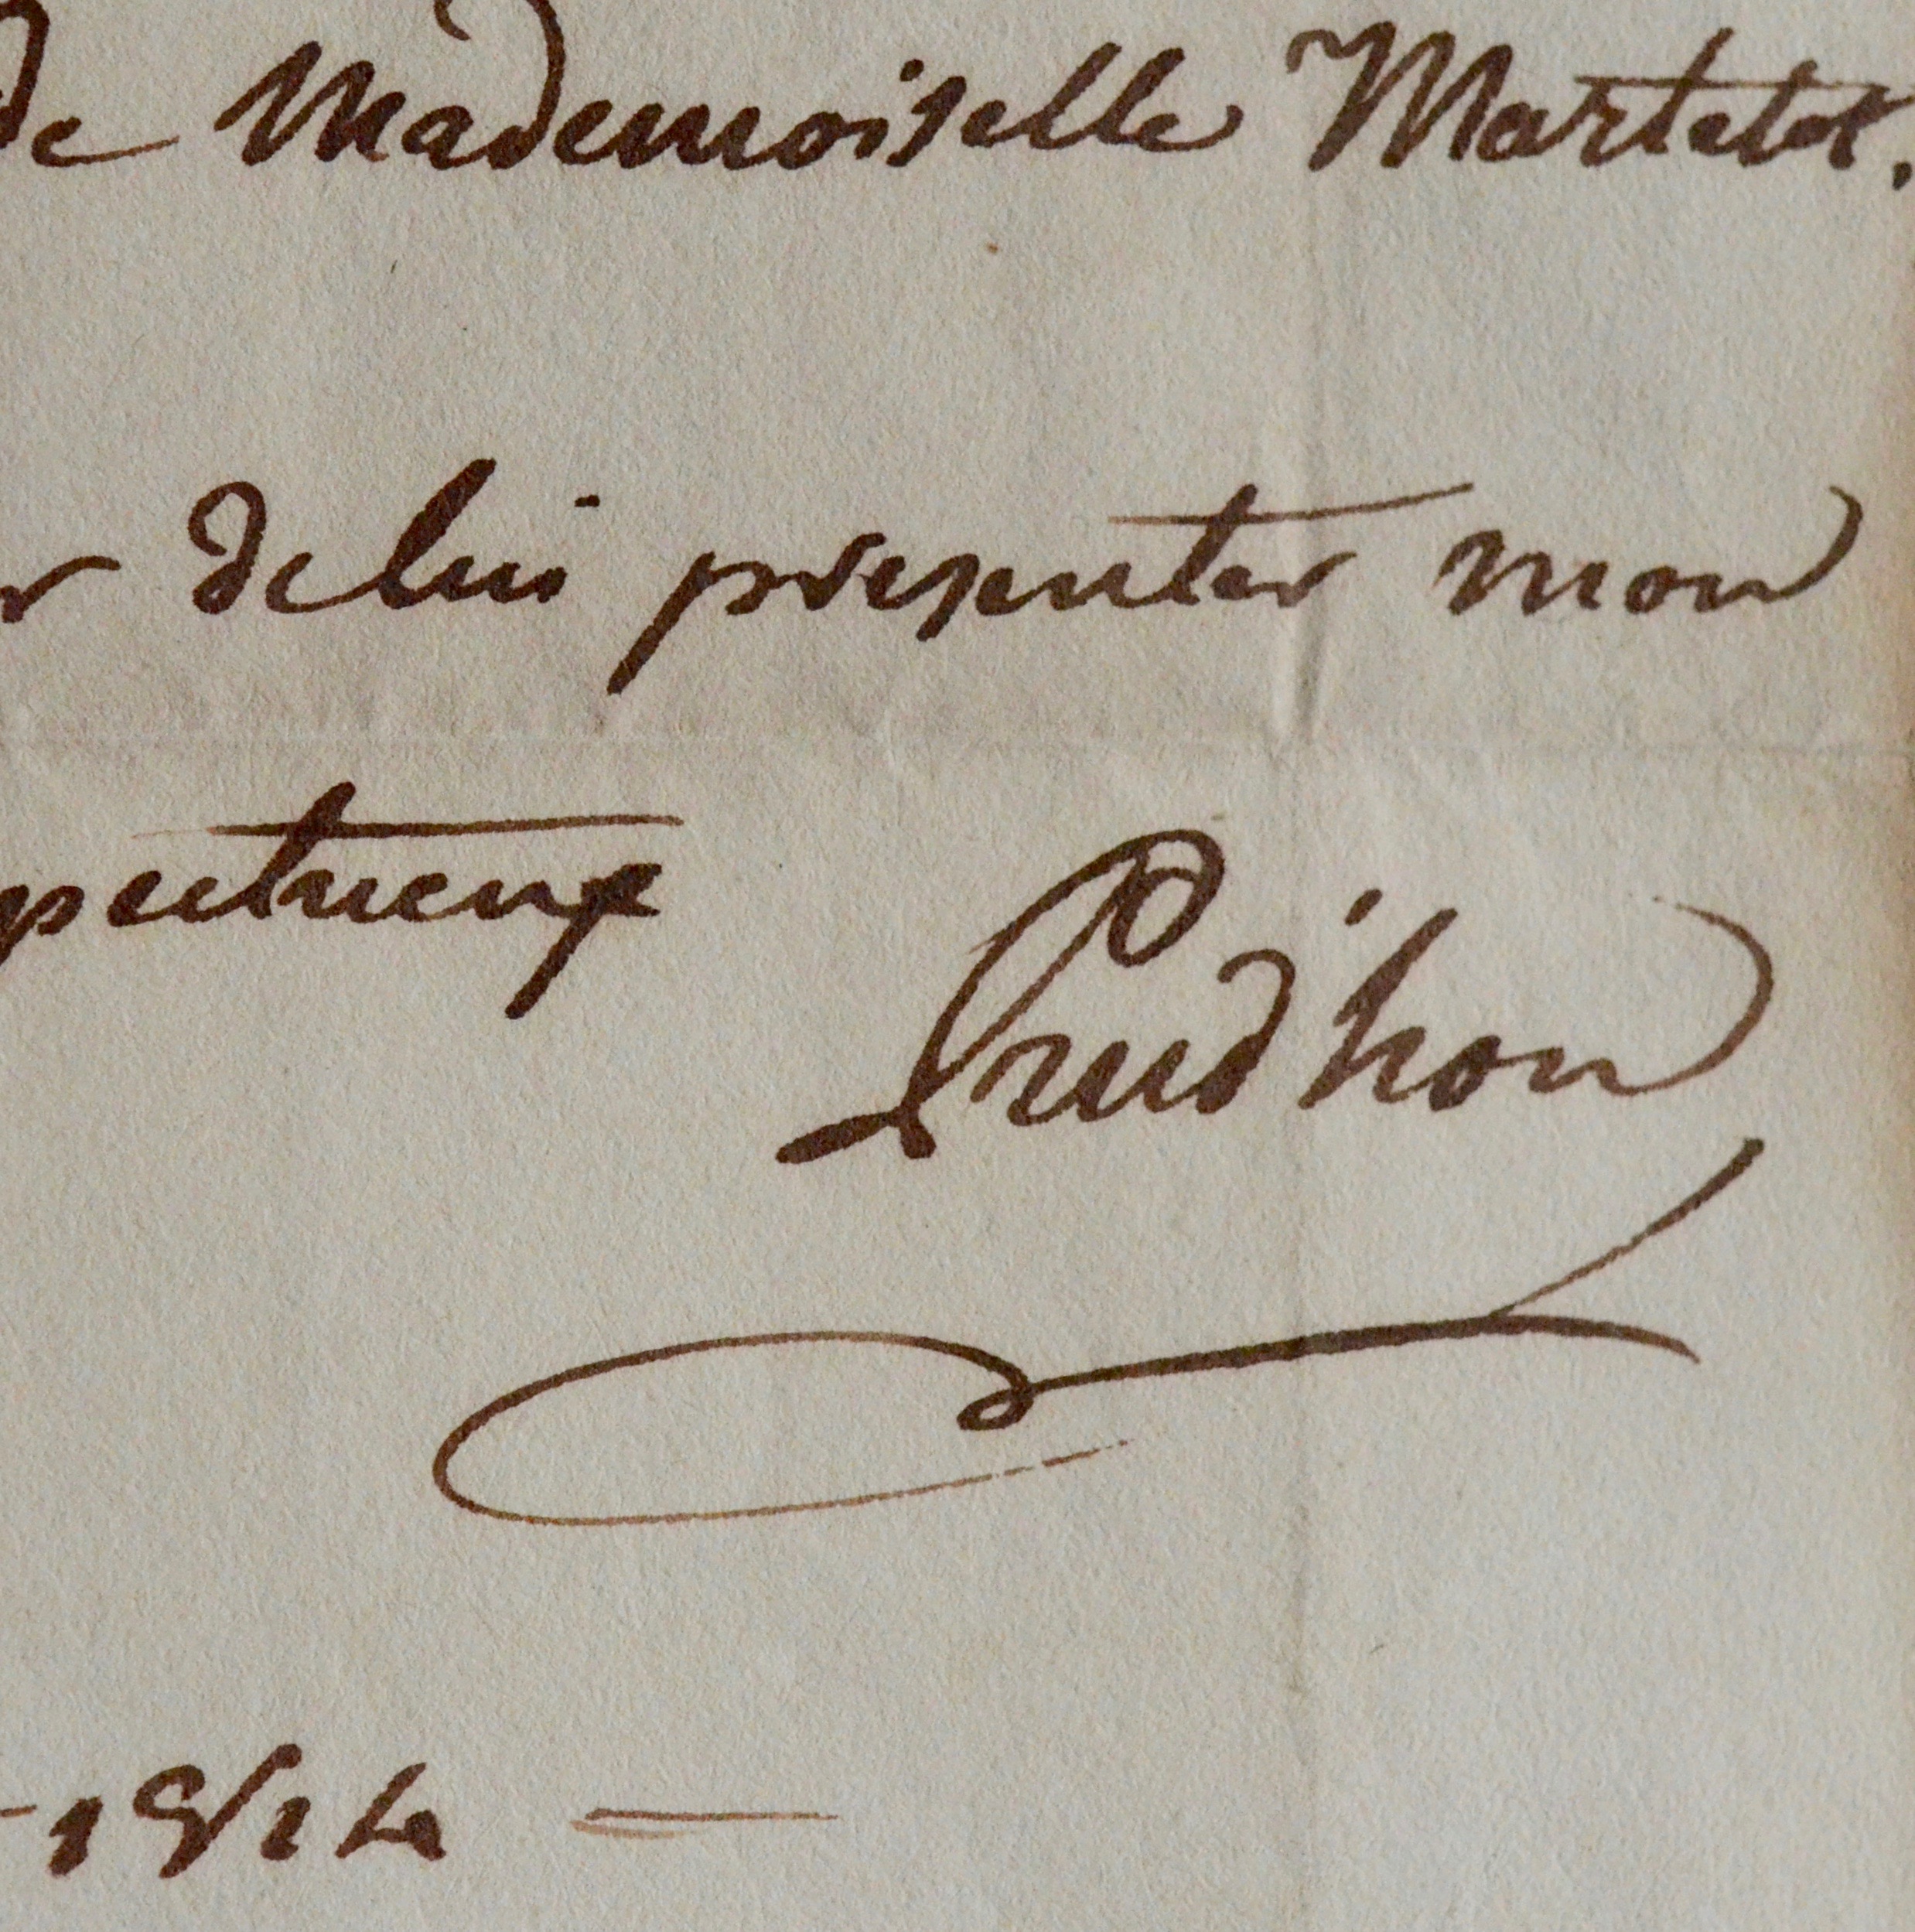 de Mademoiselle Martelet.
r de lui presenter mon
pectueux
Prud'hon
- 1814 -